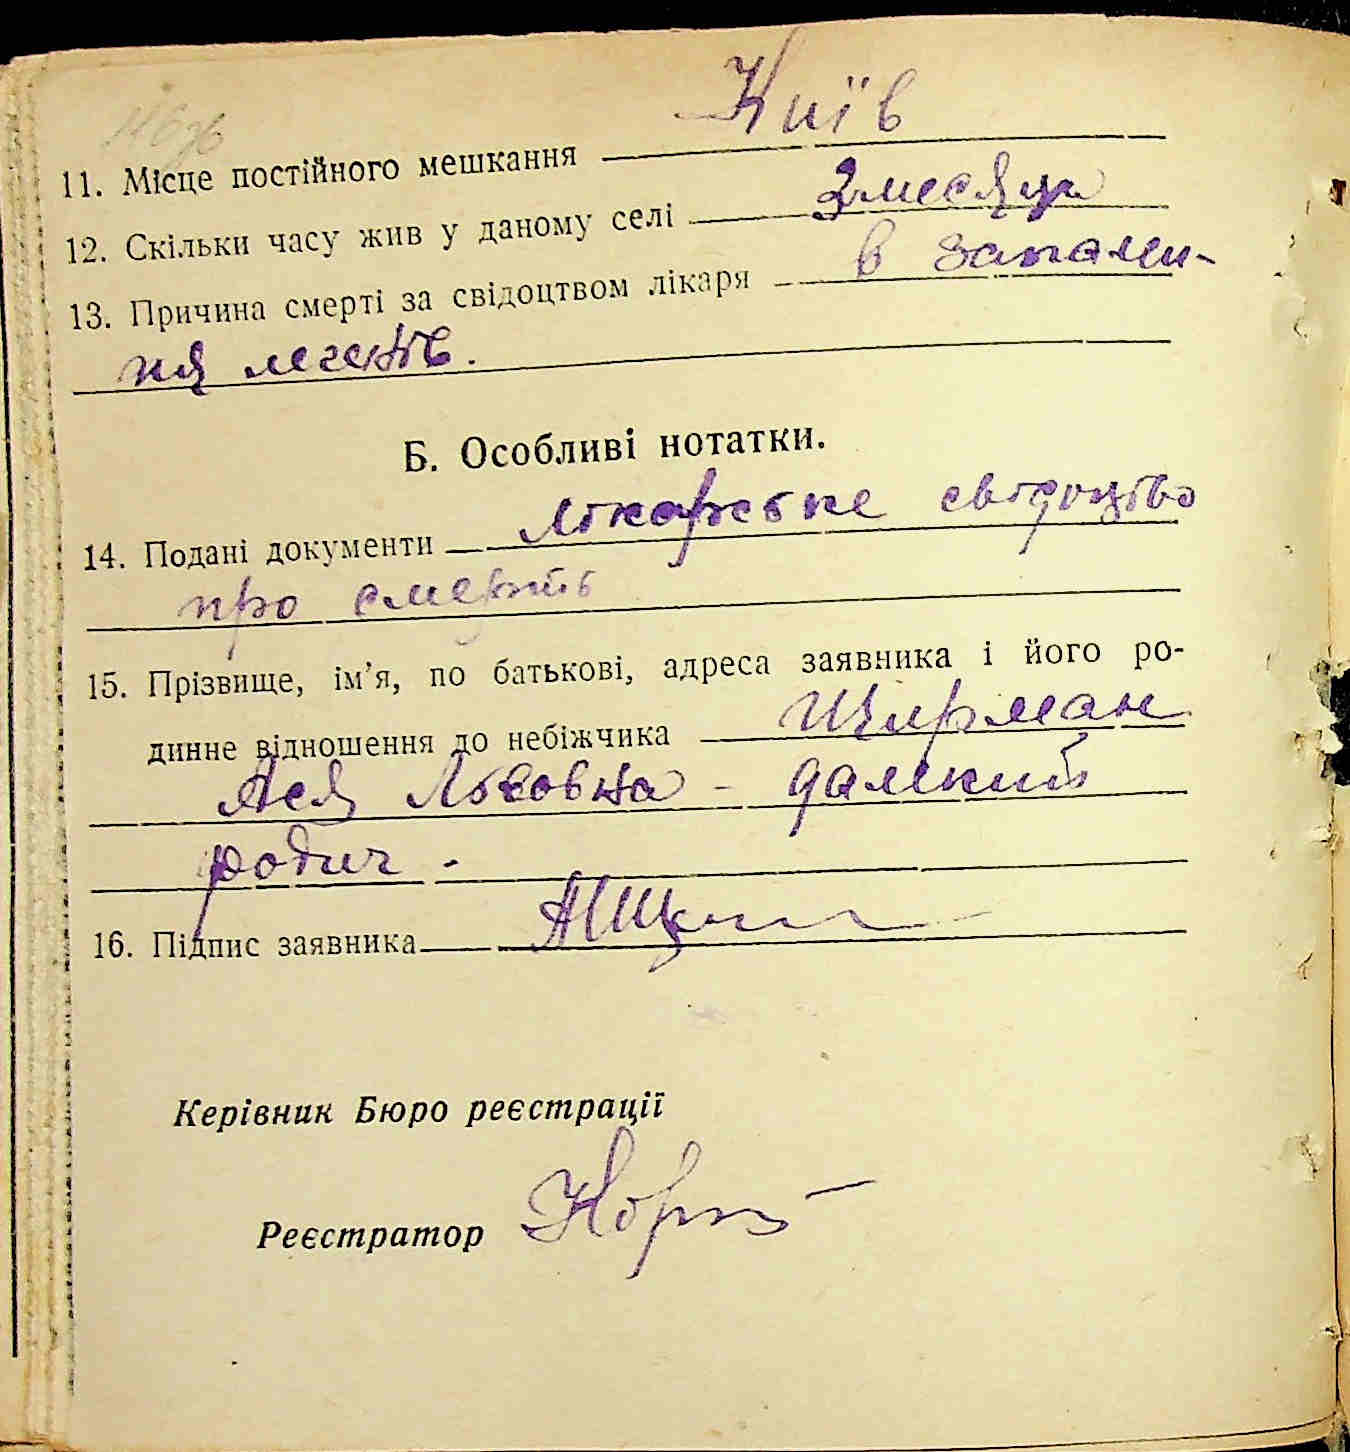 Київ
11. Місце постійного мешкання
12. Скільки часу жив у даному селі 3 месяца
13. Причина смерті за свідоцтвом лікаря в запален-
ня легенів.
Б. Особливі нотатки.
14. Подані документи лікарське свідоцтво
про смерть
15. Прізвище, ім'я, по батькові, адреса заявника і його ро-
динне відношення до небіжчика Цирман
Ася Львовна - далекий
родич -
16. Підпис заявника
Керівник Бюро реєстрації
Реєстратор